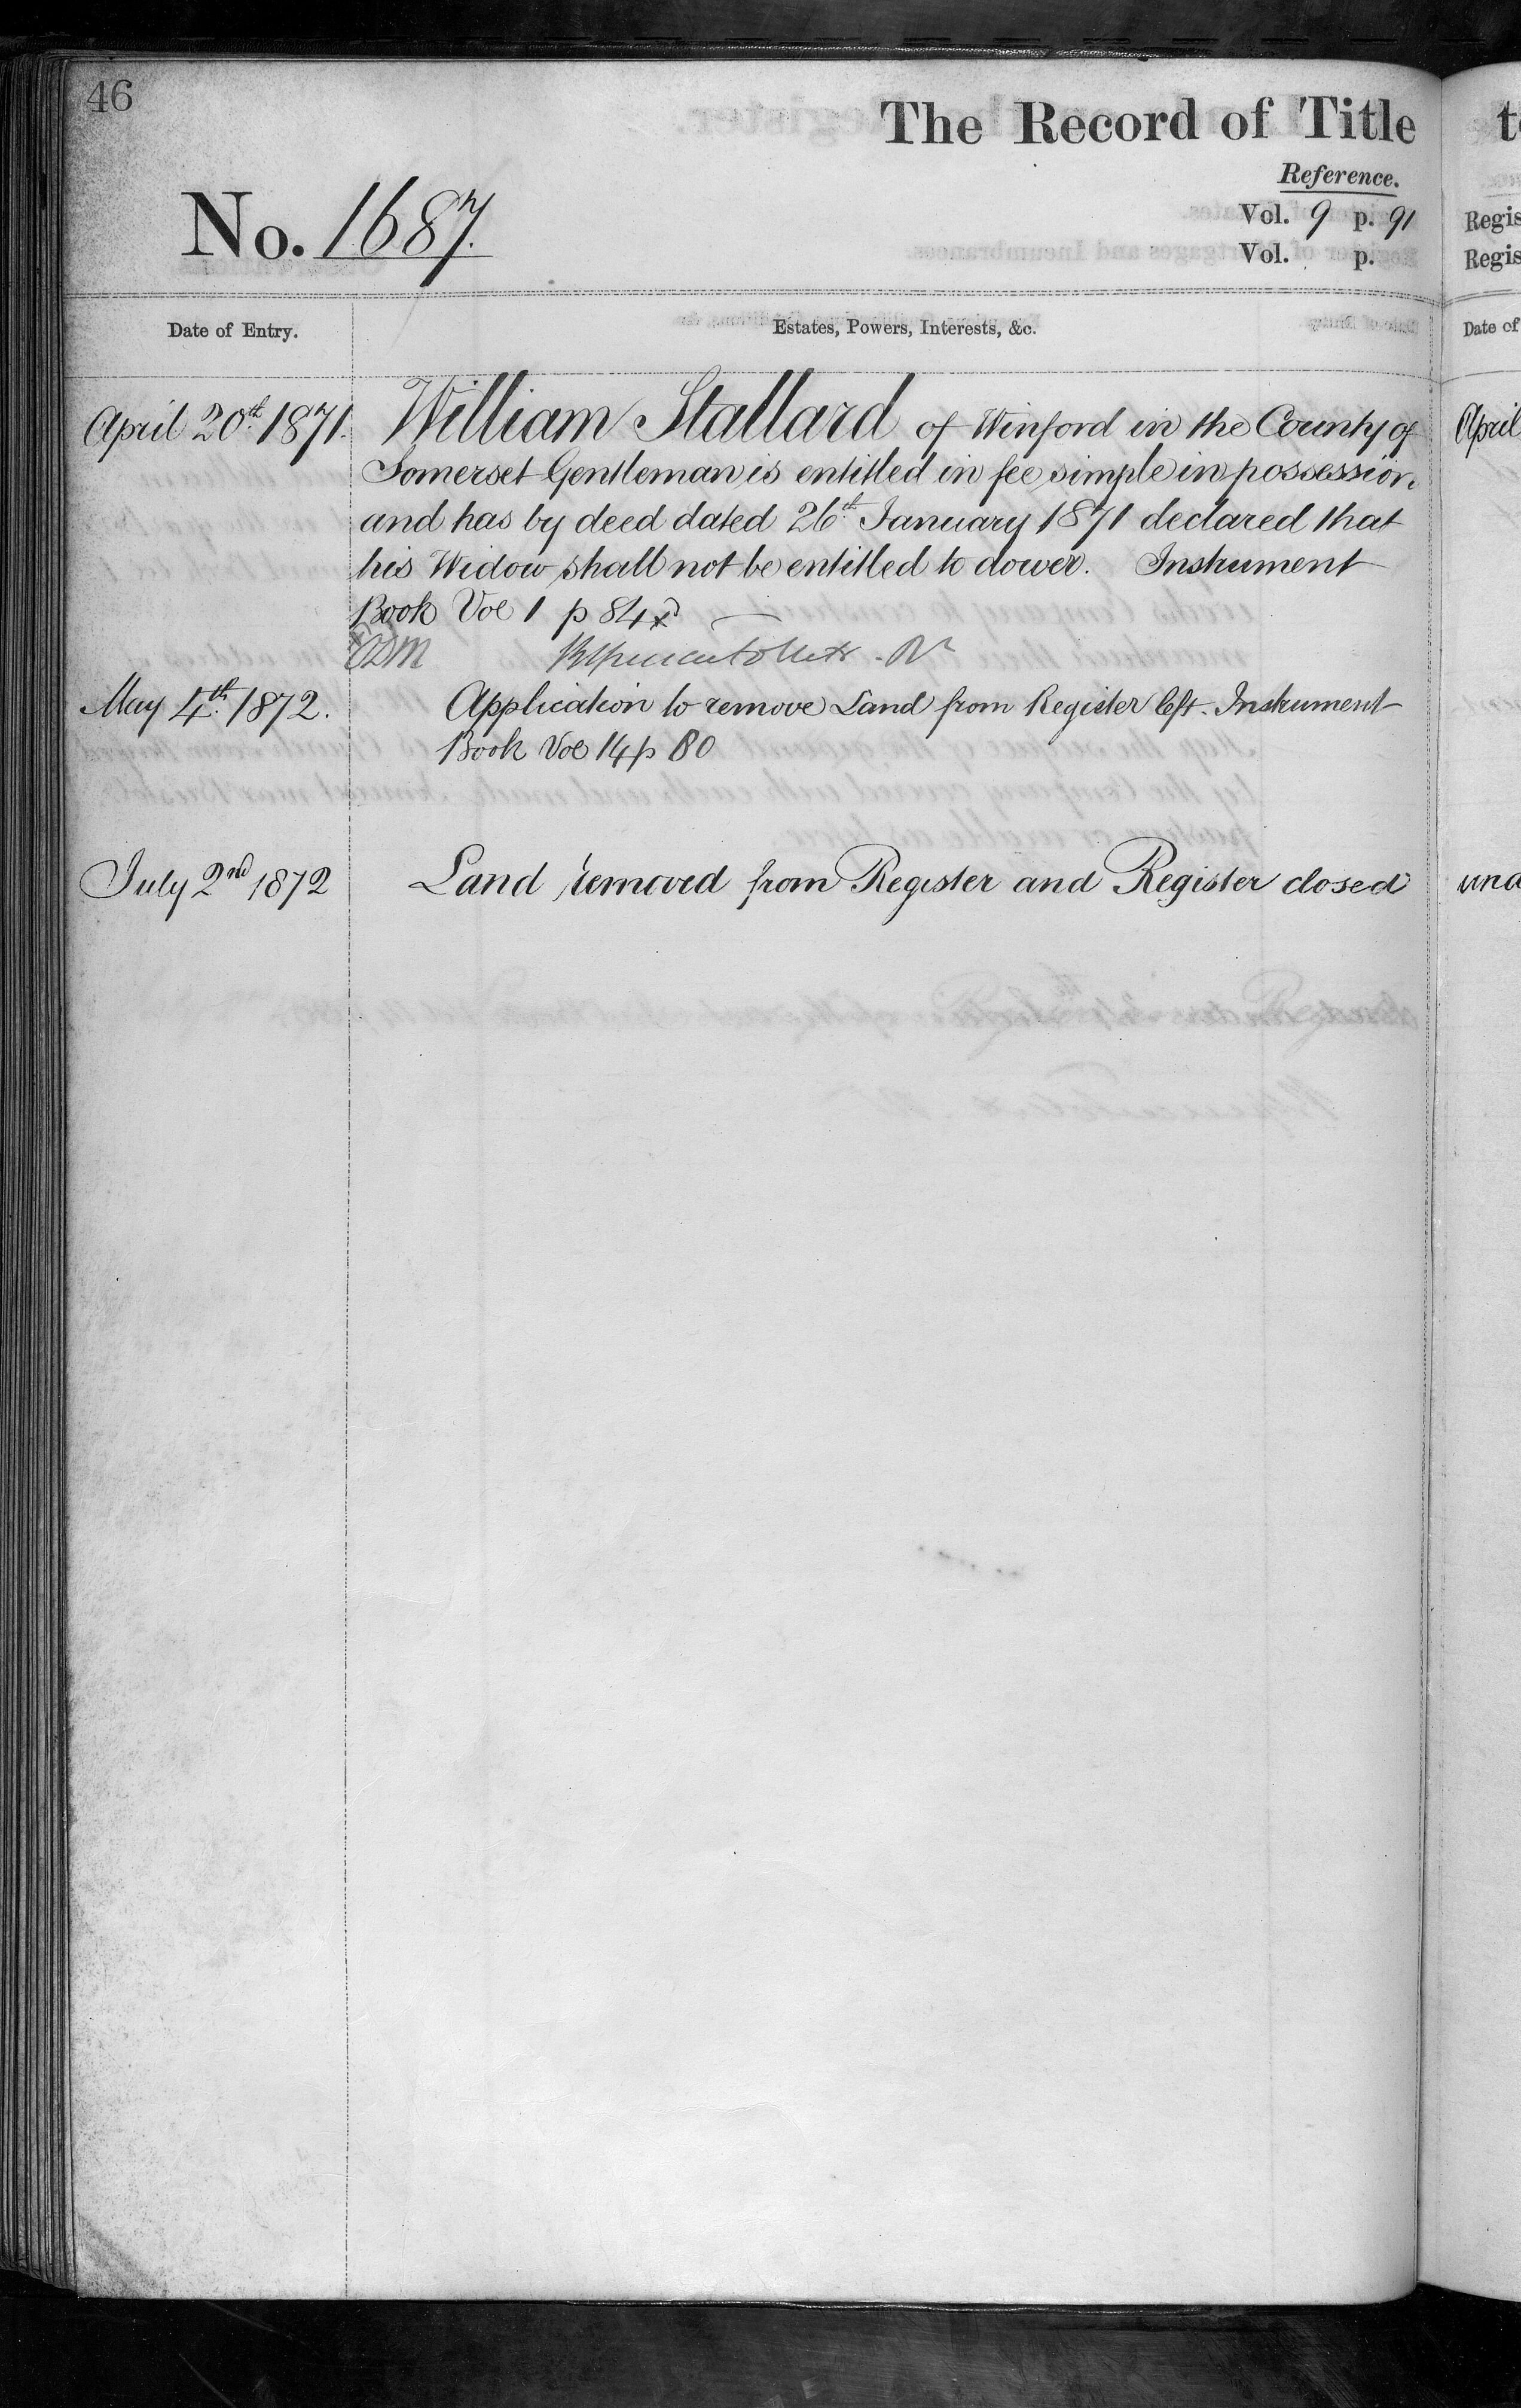 46
The Record of Title
Reference.
No. 1687.
Vol. 9 p. 91
Vol. p.
Regis
Regis
Date of Entry.
Estates, Powers, Interests, &c.
Date of
April 20th 1871. William Stallard of Winford in the County of
Somerset Gentleman is entitled in fee simple in possession
and has by deed dated 26th January 1871 declared that
his Widow shall not be entitled to dower. Instrument
Book Vol 1 p 84
May 4th 1872. Application to remove Land from Register left. Instrument
Book Vol 14 p 80
July 2nd 1872 Land removed from Register and Register closed
April